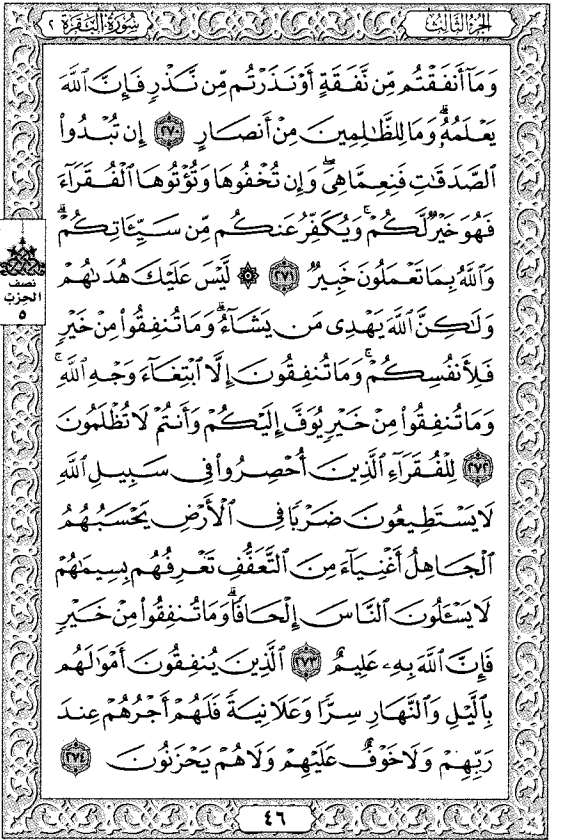 الجزء الثالث
سورة البقرة ٢
وَمَآ أَنفَقْتُم مِّن نَّفَقَةٍ أَوْ نَذَرْتُم مِّن نَّذْرٍ فَإِنَّ ٱللَّهَ
يَعْلَمُهُۥ ۗ وَمَا لِلظَّٰلِمِينَ مِنْ أَنصَارٍ ٢٧٠ إِن تُبْدُوا۟
ٱلصَّدَقَٰتِ فَنِعِمَّا هِىَ ۖ وَإِن تُخْفُوهَا وَتُؤْتُوهَا ٱلْفُقَرَآءَ
فَهُوَ خَيْرٌ لَّكُمْ ۚ وَيُكَفِّرُ عَنكُم مِّن سَيِّـَٔاتِكُمْ ۗ
وَٱللَّهُ بِمَا تَعْمَلُونَ خَبِيرٌ ٢٧١ ۞ لَّيْسَ عَلَيْكَ هُدَىٰهُمْ
وَلَٰكِنَّ ٱللَّهَ يَهْدِى مَن يَشَآءُ ۗ وَمَا تُنفِقُوا۟ مِنْ خَيْرٍ
فَلِأَنفُسِكُمْ ۚ وَمَا تُنفِقُونَ إِلَّا ٱبْتِغَآءَ وَجْهِ ٱللَّهِ ۚ
وَمَا تُنفِقُوا۟ مِنْ خَيْرٍ يُوَفَّ إِلَيْكُمْ وَأَنتُمْ لَا تُظْلَمُونَ
٢٧٢ لِلْفُقَرَآءِ ٱلَّذِينَ أُحْصِرُوا۟ فِى سَبِيلِ ٱللَّهِ
لَا يَسْتَطِيعُونَ ضَرْبًا فِى ٱلْأَرْضِ يَحْسَبُهُمُ
ٱلْجَاهِلُ أَغْنِيَآءَ مِنَ ٱلتَّعَفُّفِ تَعْرِفُهُم بِسِيمَٰهُمْ
لَا يَسْـَٔلُونَ ٱلنَّاسَ إِلْحَافًا ۗ وَمَا تُنفِقُوا۟ مِنْ خَيْرٍ
فَإِنَّ ٱللَّهَ بِهِۦ عَلِيمٌ ٢٧٣ ٱلَّذِينَ يُنفِقُونَ أَمْوَٰلَهُم
بِٱلَّيْلِ وَٱلنَّهَارِ سِرًّا وَعَلَانِيَةً فَلَهُمْ أَجْرُهُمْ عِندَ
رَبِّهِمْ وَلَا خَوْفٌ عَلَيْهِمْ وَلَا هُمْ يَحْزَنُونَ ٢٧٤
نصف
الحزب
٥
٤٦